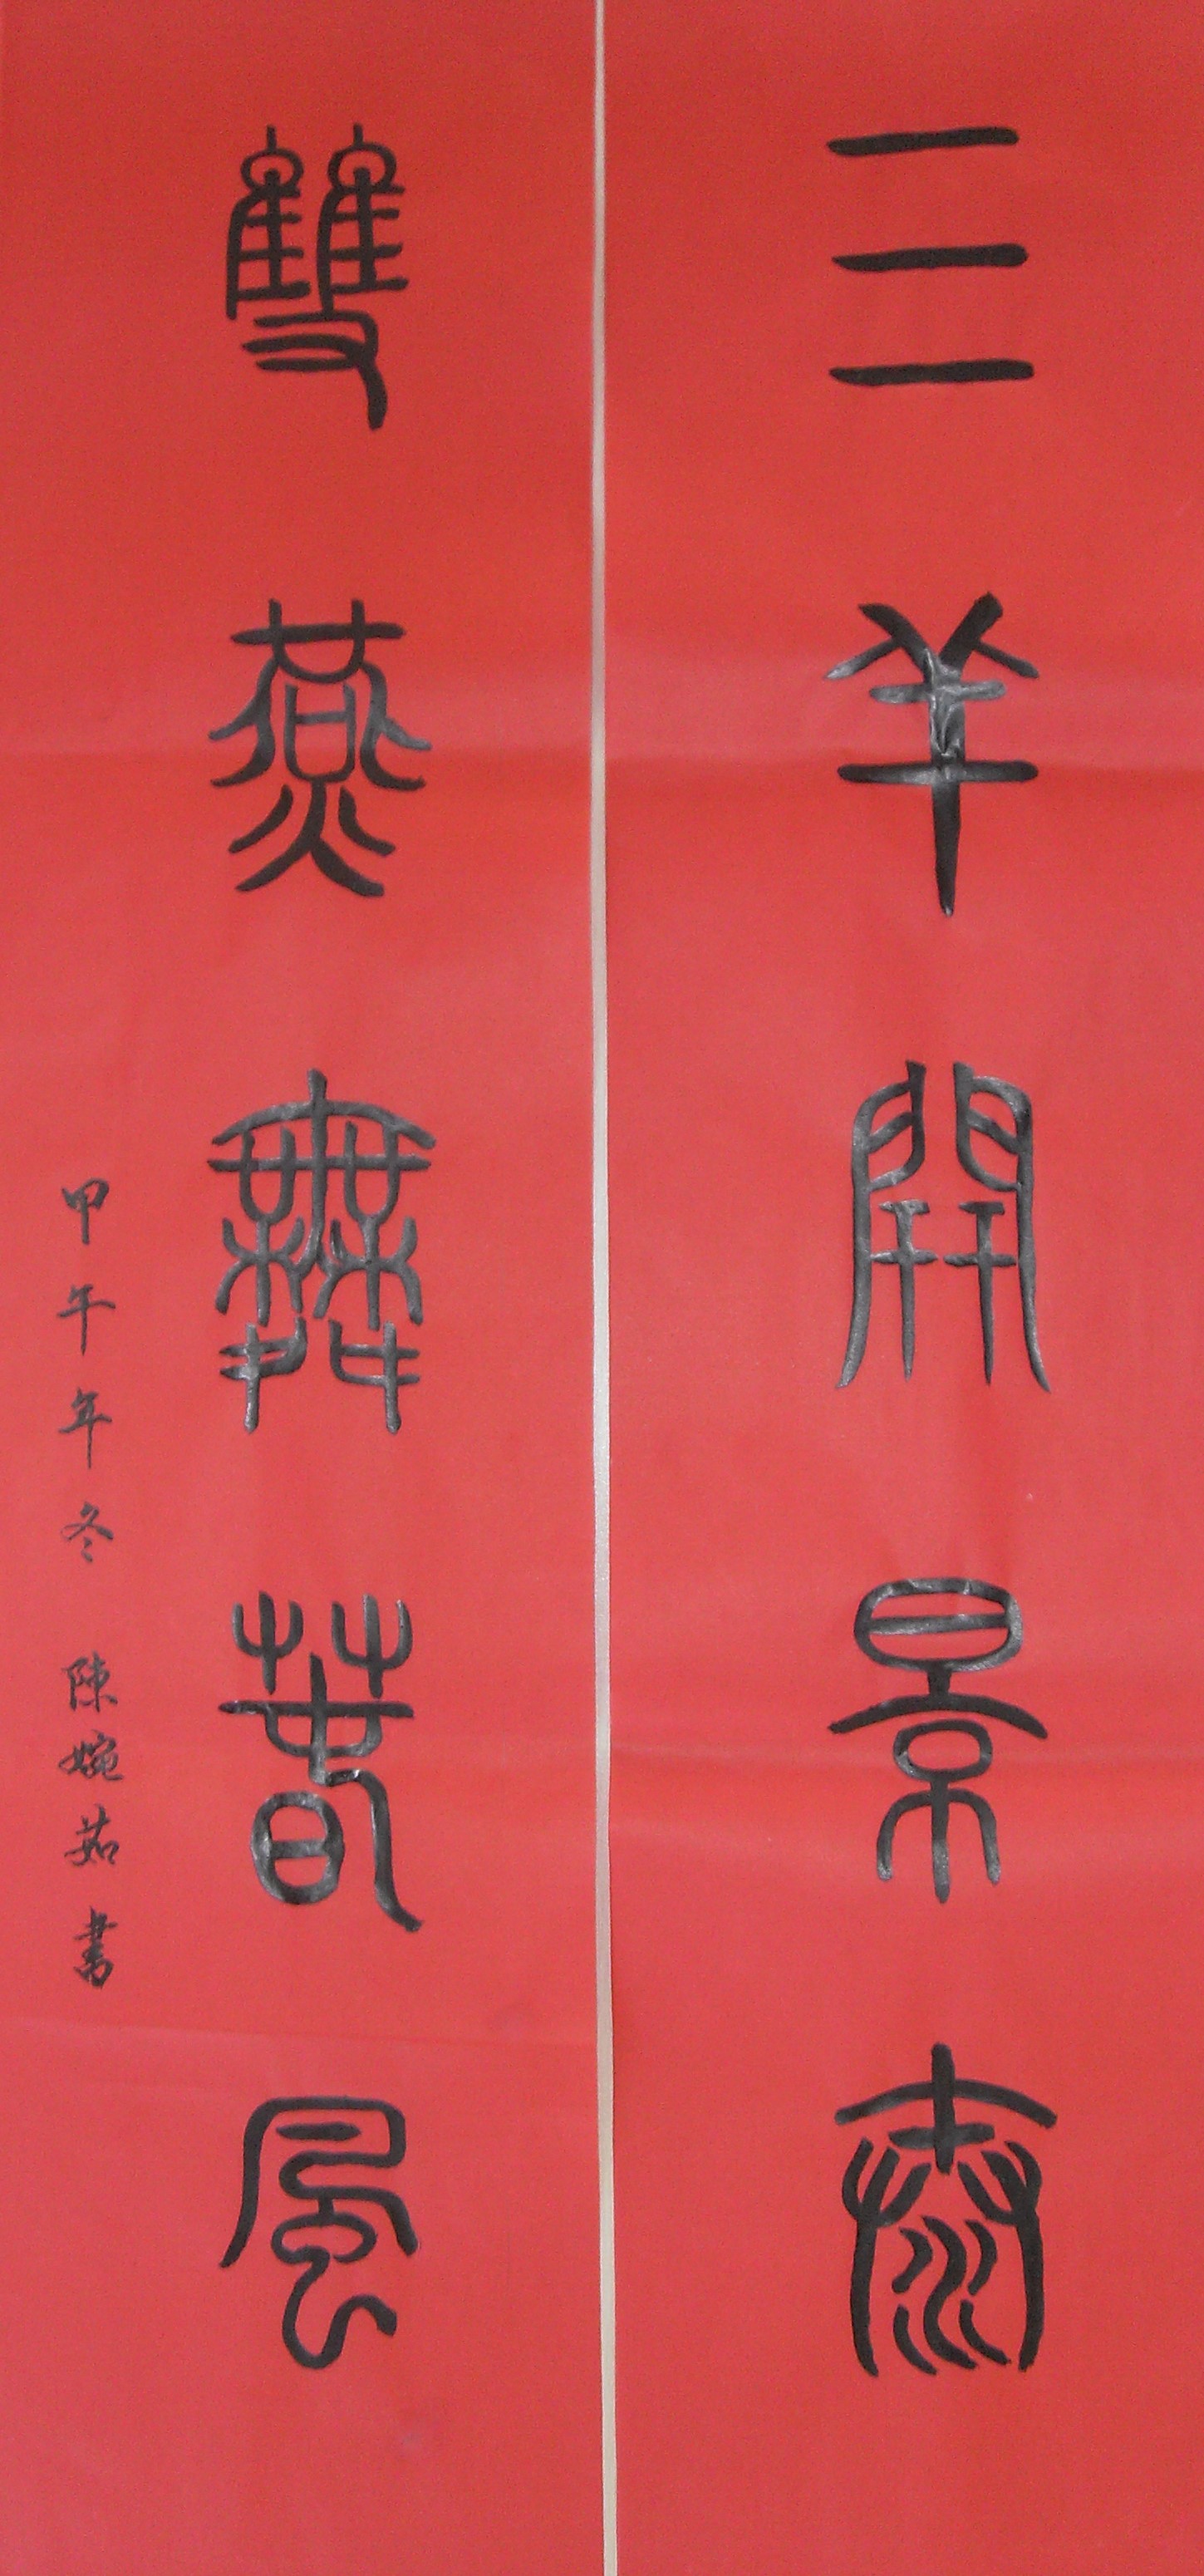 三羊開景泰
雙燕舞春風
甲午年冬 陳婉茹書